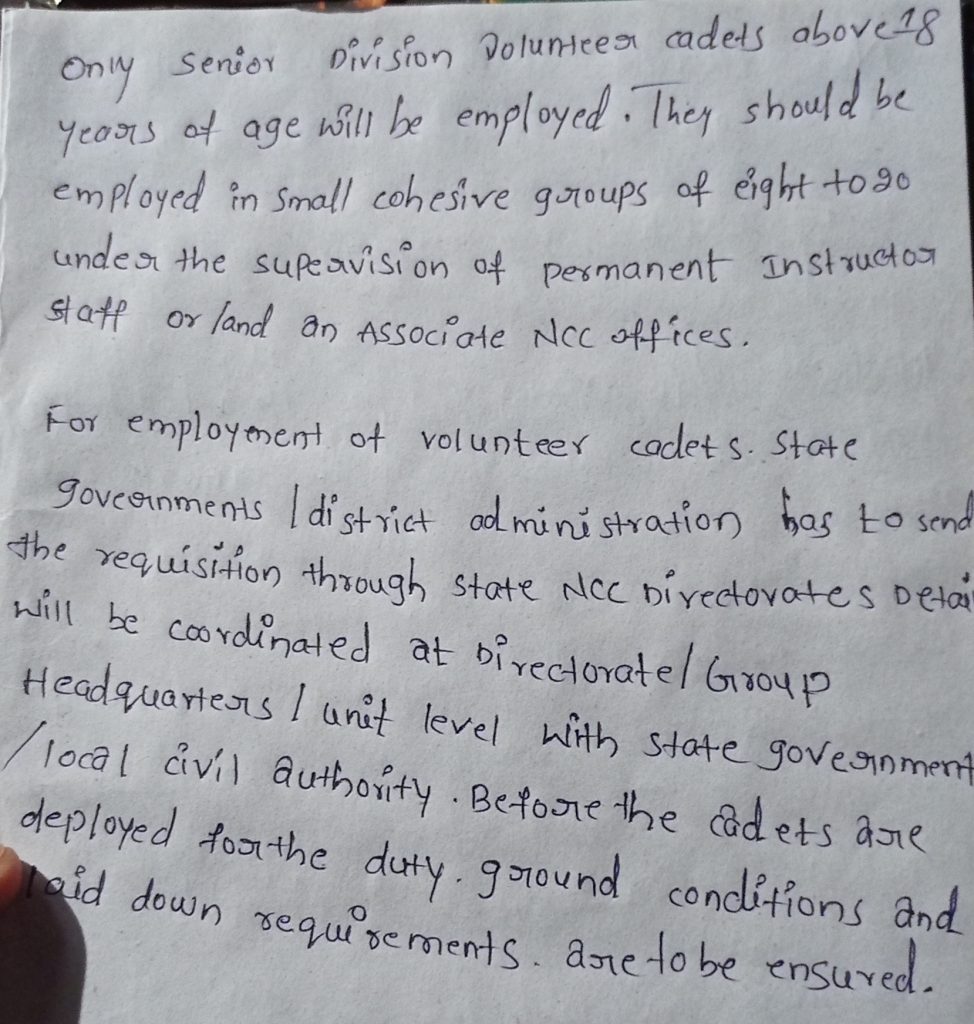 Only Senior Division Volunteer cadets above 18
years of age will be employed. They should be
employed in small cohesive groups of eight to 20
under the supervision of permanent Instructor
Staff or/and an Associate NCC offices.
For employment of volunteer cadets. State
governments / district administration has to send
the requisition through State NCC Directorates Detai
will be coordinated at Directorate/ Group
Headquarters / unit level with state government
/ local civil authority. Before the cadets are
deployed for the duty. ground conditions and
laid down requirements. are to be ensured.